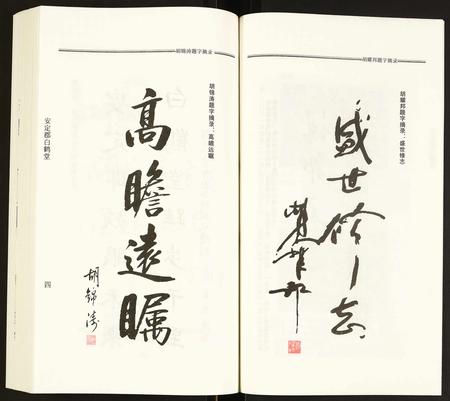 胡耀邦题字摘录
胡耀邦题字摘录：盛世修志
盛世修志
胡耀邦
胡锦涛题字摘录
胡锦涛题字摘录：高瞻远瞩
高瞻遠矚
胡錦濤
安定郡白鹤堂
四